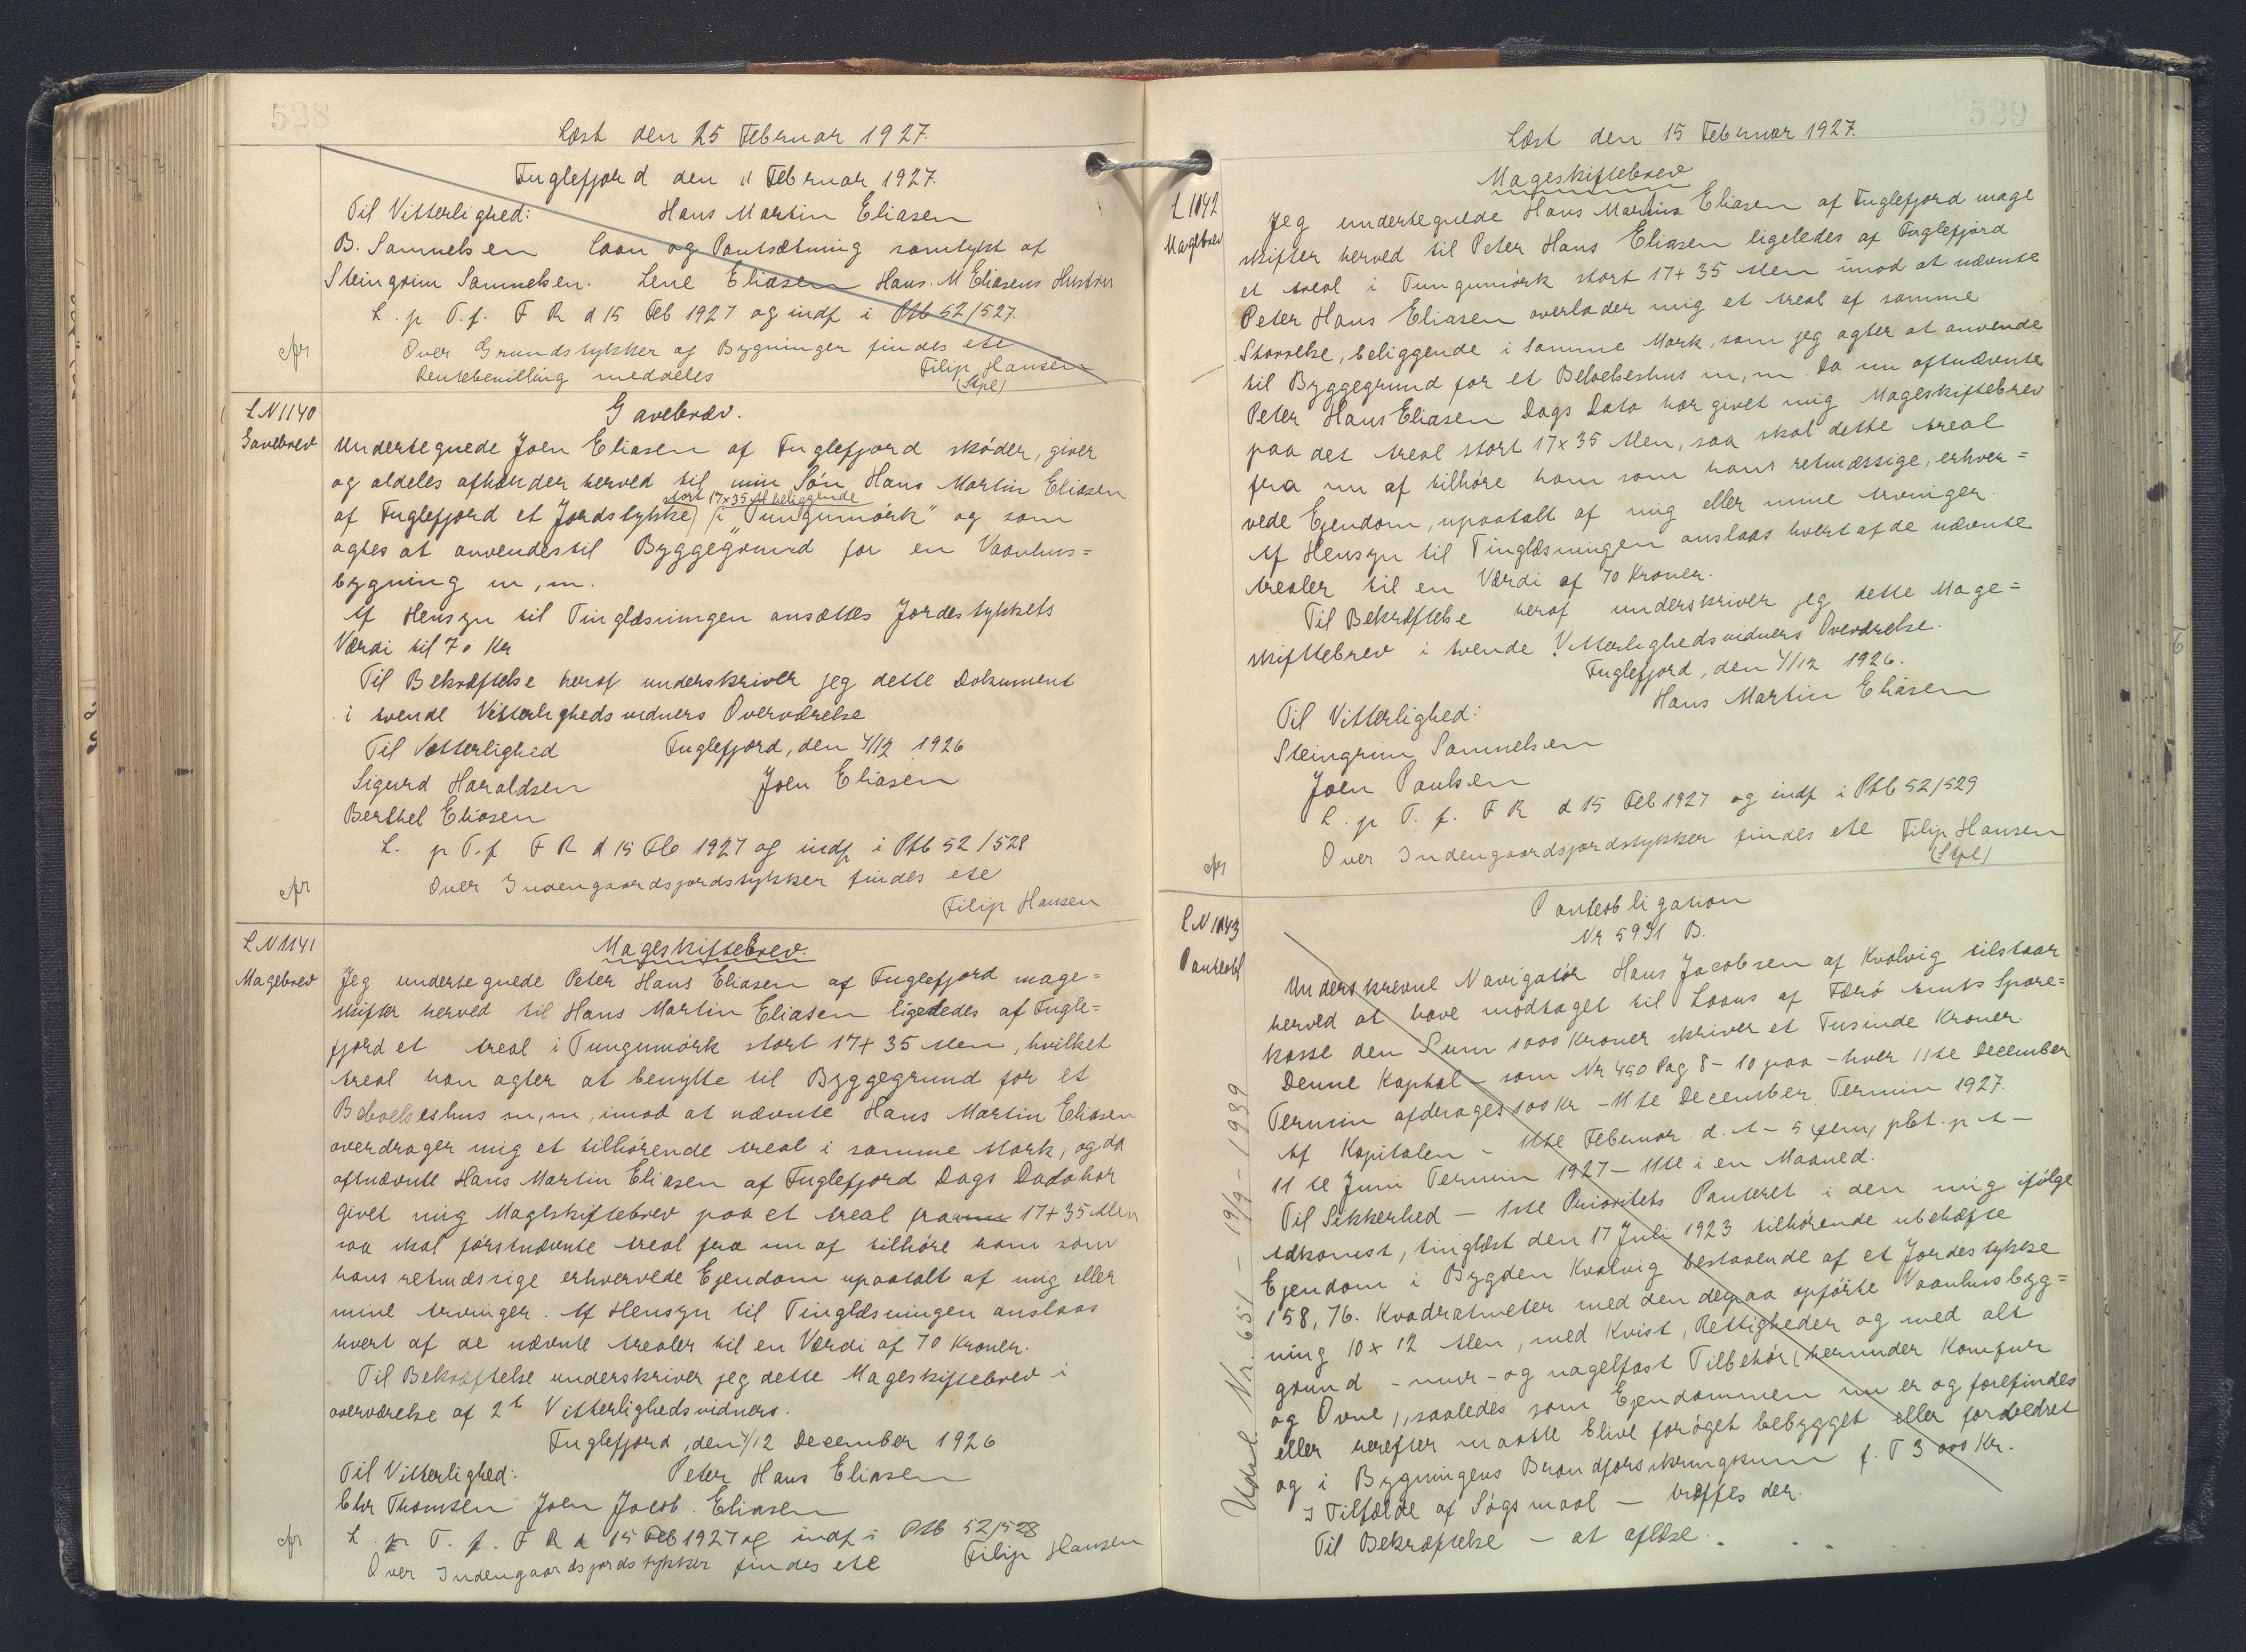 528
Læst den 25 Februar 1927.
Fuglefjord den 11 Februar 1927.
Til Vitterlighed: Hans Martin Eliasen
B. Samuelsen Laan og Pantsætning samtykt af
Steingrim Samuelsen. Lene Eliasen Hans. M Eliasens Hustru
L. p T. f. F R d 15 Feb 1927 og indf i Ptb 52/527.
Over Grundstykker og Bygninger findes ete
Rentebevilling meddeles Filip Hansen
(Stpl)
LN1140
Gavebrev
Gavebrev.
Undertegnede Joen Eliasen af Fuglefjord skøder, giver
og aldeles afhænder herved til min Søn Hans Martin Eliasen
stort 17x35 Al beliggende
af Fuglefjord et Jordstykke i "Tungumørk" og som
agtes at anvendes til Byggegrund for en Vaanhus=
bygning m, m.
Af Hensyn til Tinglæsningen ansættes Jordestykkets
Værdi til 70 Kr
Til Bekræftelse herof underskriver jeg dette Dokument
i tvende Vitterligheds vidners Overværelse
Til Vitterlighed Fuglefjord, den 4/12 1926
Sigurd Haraldsen Joen Eliasen
Berthel Eliasen
L. p T. f F R d 15 Feb 1927 og indf i Ptb 52/528
Over Indengaardsjordstykker findes ete
Filip Hansen
LN1141
Magebrev
Mageskiftebrev.
Jeg undertegnede Peter Hans Eliasen af Fuglefjord mage=
skifter herved til Hans Martin Eliasen ligeledes af Fugle=
fjord et Areal i Tungumørk stort 17+35 Alen, hvilket
Areal han agter at benytte til Byggegrund for et
Beboelseshus m,m, imod at nævnte Hans Martin Eliasen
overdrager mig et tilhørende Areal i samme Mark, og da
oftnævnte Hans Martin Eliasen af Fuglefjord Dags Dato har
givet mig Mageskiftebrev paa et Areal fra 17+35 Alen
saa skal førstnævnte Areal fra nu af tilhøre ham som
hans retmæssige erhvervede Ejendom upaatalt af mig eller
mine Arvinger. Af Hensyn til Tinglæsningen anslaas
hvert af de nævnte Arealer til en Værdi af 70 Kroner.
Til Bekræftelse underskriver jeg dette Mageskiftebrev i
overværelse af 2 Vitterlighedsvidners.
Fuglefjord, den 4/12 December 1926
Til Vitterlighed: Peter Hans Eliasen
Chr Thomsen Joen Jacob. Eliasen
L. p T. f. F R d 15 Feb 1927 og indf i Ptb 52/528
Over Indengaardsjordstykker findes ete Filip Hansen
529
Læst den 15 Februar 1927.
L 1142
Magebrev
Mageskiftebrev
Jeg undertegnede Hans Martin Eliasen af Fuglefjord mage
skifter herved til Peter Hans Eliasen ligeledes af Fuglefjord
et Areal i Tungumørk stort 17+35 Alen imod at nævnte
Peter Hans Eliasen overlader mig et Areal af samme
Størrelse, beliggende i samme Mark, som jeg agter at anvende
til Byggegrund for et Beboelseshus m, m. Da nu oftnævnte
Peter Hans Eliasen Dags Dato har givet mig Mageskiftebrev
paa det Areal stort 17x35 Alen, saa skal dette Areal
fra nu af tilhøre ham som hans retmæssige, erhver=
vede Ejendom, upaatalt af mig eller mine Arvinger.
Af Hensyn til Tinglæsningen anslaas hvert af de nævnte
Arealer til en Værdi af 70 Kroner.
Til Bekræftelse herof underskriver jeg dette Mage=
skiftebrev i tvende Vitterlighedsvidners Overværelse.
Fuglefjord, den 4/12 1926.
Hans Martin Eliasen
Til Vitterlighed:
Steingrim Samuelsen
Joen Poulsen
L. p T. f. F R d 15 Feb 1927 og indf i Ptb 52/529
Over Indengaardsjordstykker findes ete Filip Hansen
(Stpl)
LN 1143
Panteobl
Panteobligation
Nr 5931 B.
Underskrevne Navigatør Hans Jacobsen af Kvalvig tilstaar
herved at have modtaget til Laans af Færø Amts Spare=
kasse den Sum 1000 Kroner skriver et Tusinde Kroner.
Denne Kapital - som Nr 490 Pag 8-10 paa - hver 11te December
Termin afdrages 100 Kr - 11te December Termin 1927.
Af Kapitalen - 11te Februar d. A - 5 fem pCt. p A -
11te Juni Termin 1927 - 11te i en Maaned.
Til Sikkerhed - 1ste Prioritets Panteret i den mig ifølge
Adkomst, tinglæst den 17 Juli 1923 tilhørende ubehæftede
Ejendom i Bygden Kvalvig bestaaende af et Jordestykke
158,76. Kvadratmeter med den derpaa opførte Vaanhusbyg=
ning 10x12 Alen, med Kvist, Rettigheder og med alt
grund - mur - og nagelfast Tilbehør (herunder Komfur
og Ovne), saaledes som Ejendommen nu er og forefindes
eller herefter maatte blive forøget bebygget eller forbedret
og i Bygningens Brandforsikringssum f. T 3000 Kr.
I Tilfælde af Søgsmaal - træffes der.
Til Bekræftelse - at aflæse.
Udsl Nr. 651 - 19/9 - 1939